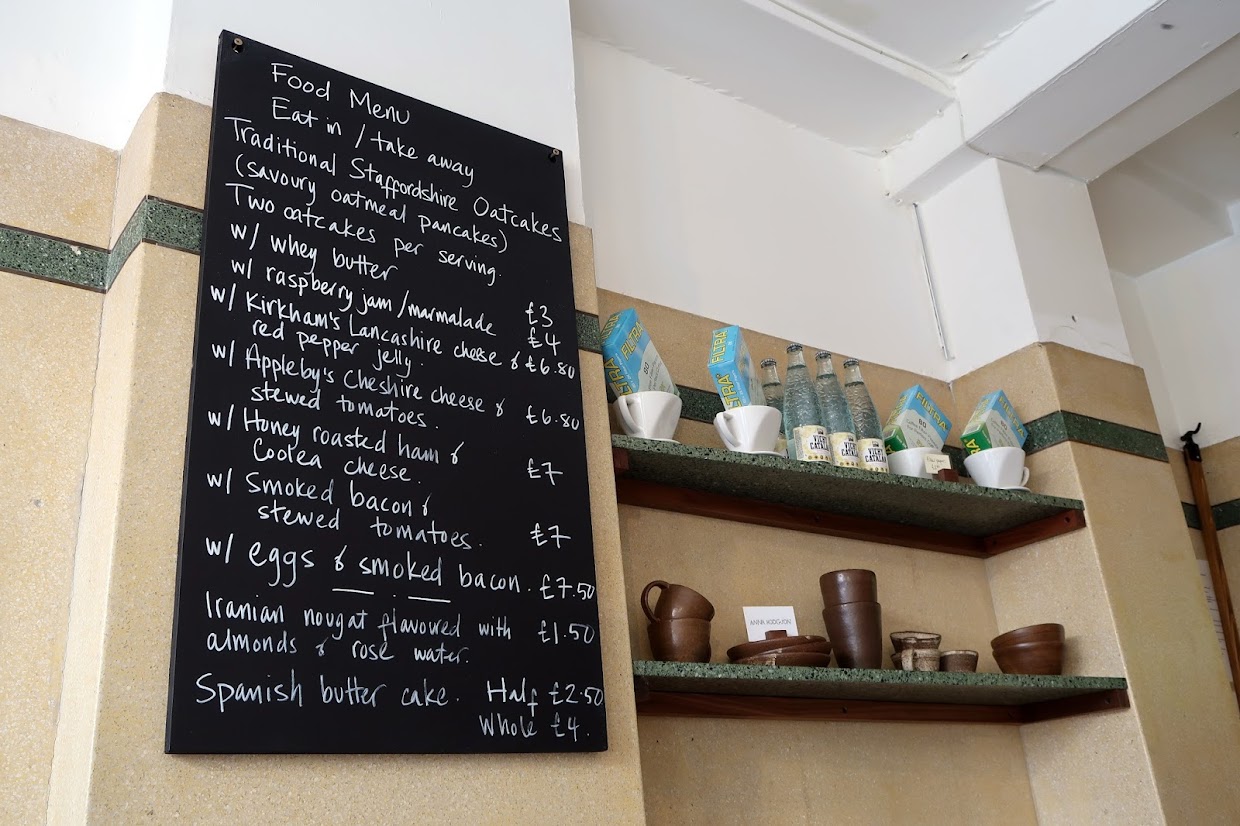 Food Menu
Eat in / take away
Traditional Staffordshire Oatcakes
(savoury oatmeal pancakes)
Two oatcakes per serving.
w/ whey butter £3
w/ raspberry jam / marmalade £4
w/ Kirkham's Lancashire cheese & £6.80
red pepper jelly.
w/ Appleby's Cheshire cheese & £6.80
stewed tomatoes.
w/ Honey roasted ham & £7
Coolea cheese.
w/ Smoked bacon & £7
stewed tomatoes.
w/ eggs & smoked bacon. £7.50
Iranian nougat flavoured with £1.50
almonds & rose water.
Spanish butter cake. Half £2.50
Whole £4.
FILTRA
FILTRA
FILTRA
FILTRA
FILTRA
60
VICHY
CATALAN
60
ANNA HODGSON